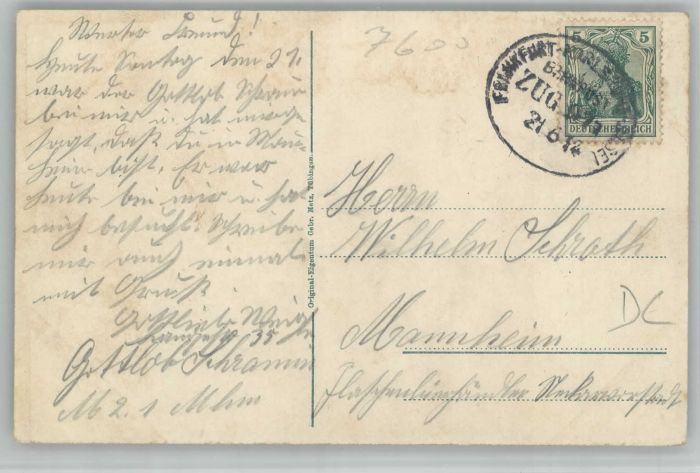 Werter Freund!
Heute Sontag den 21.
war der Gottlob Schramm
bei mir u. hat mir ge-
sagt, daß Du in Man-
heim bist. Er war
heute bei mir u. hat
mich besucht. Schreibe
mir auch einmal
mit Gruß.
Gottlieb
35
Gottlob Schramm
M 2. 1 Mhm
Original-Eigentum Gebr. Metz, Tübingen.
7600
5 5
DEUTSCHES REICH
FRANKFURT BASEL
BAHNPOST
ZUG
21 6 12
Herrn
Wilhelm Schroth
DC
Mannheim
Flaschenbierhändler Neckarvorstadt